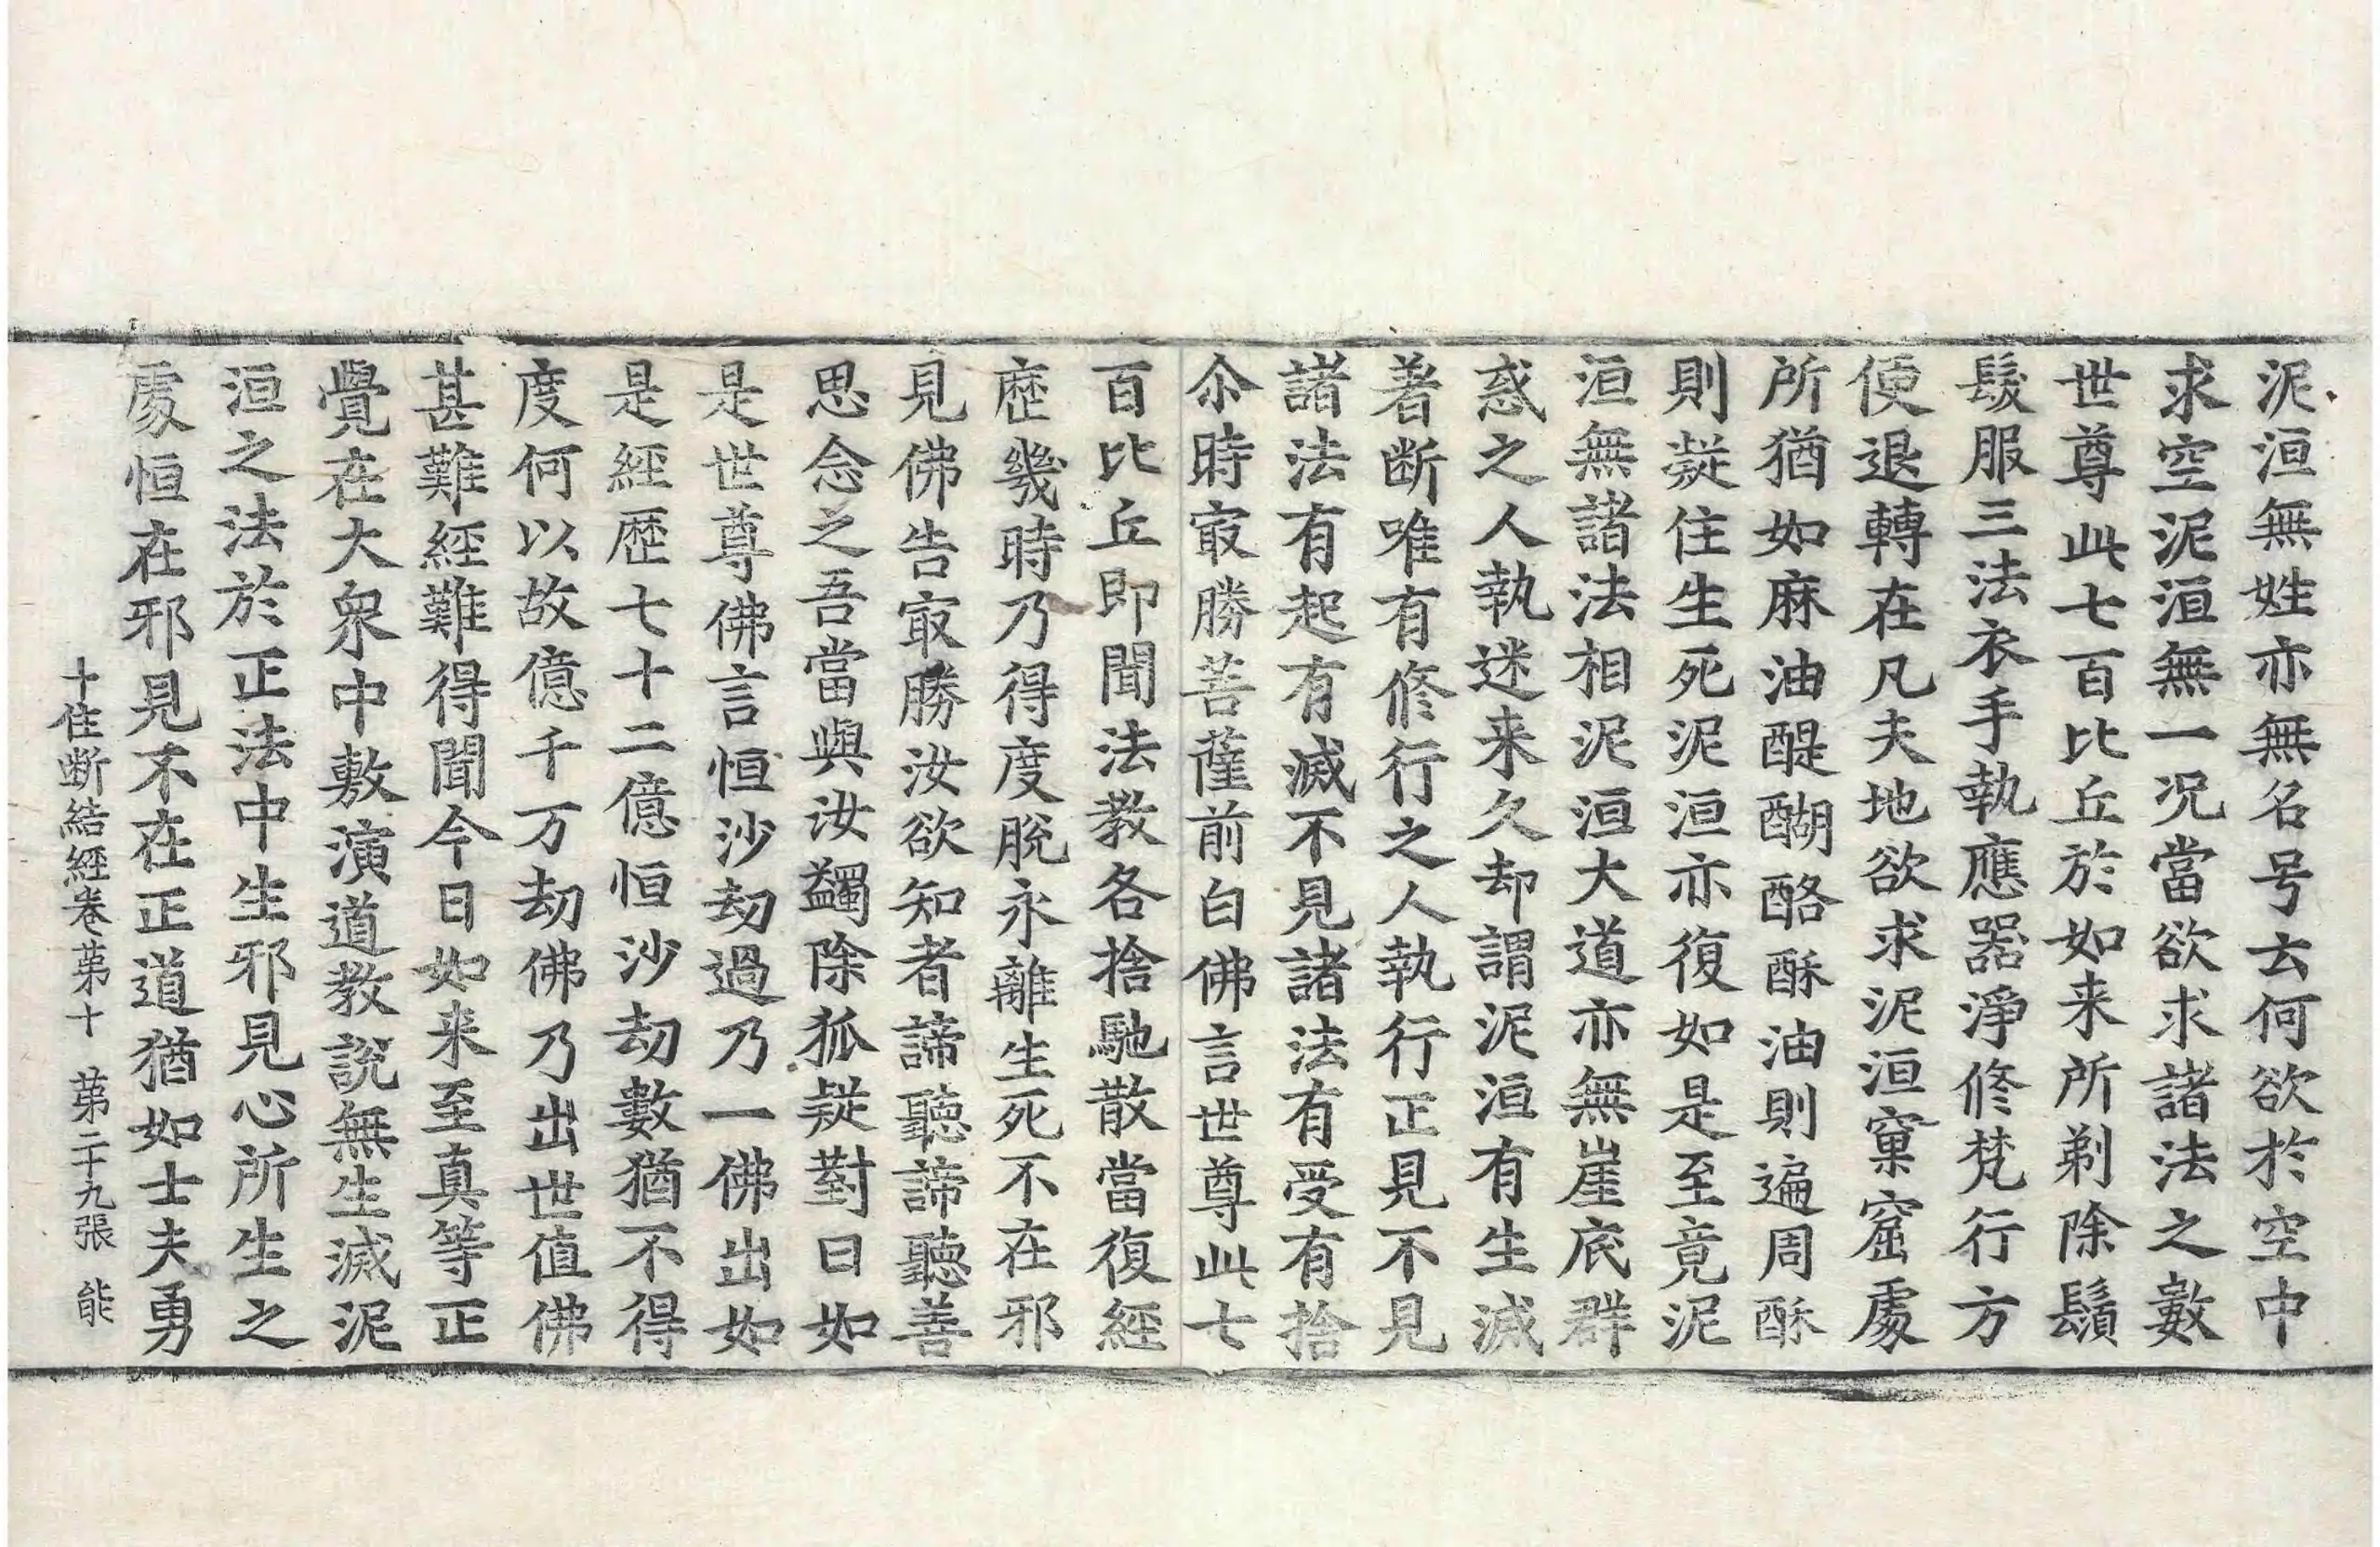 泥洹無姓亦無名号云何欲於空中
求空泥洹無一况當欲求諸法之數
世尊此七百比丘於如来所剃除鬚
髮服三法衣手執應器淨修梵行方
便退轉在凡夫地欲求泥洹窠窟處
所猶如麻油醍醐酪酥油則遍周酥
則凝住生死泥洹亦復如是至竟泥
洹無諸法相泥洹大道亦無崖底群
惑之人執迷来久却謂泥洹有生滅
著断唯有修行之人執行正見不見
諸法有起有滅不見諸法有受有捨
尒時㝡勝菩薩前白佛言世尊此七
百比丘即聞法教各捨馳散當復經
歷幾時乃得度脫永離生死不在邪
見佛告㝡勝汝欲知者諦聽諦聽善
思念之吾當與汝蠲除狐疑對曰如
是世尊佛言恒沙劫過乃一佛出如
是經歷七十二億恒沙劫數猶不得
度何以故億千万劫佛乃出世值佛
甚難經難得聞今日如来至真等正
覺在大衆中敷演道教說無生滅泥
洹之法於正法中生邪見心所生之
處恒在邪見不在正道猶如士夫勇
十住断結經卷苐十 苐二十九張 能